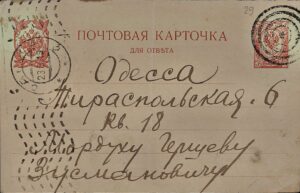 29
ПОЧТОВАЯ КАРТОЧКА
ДЛЯ ОТВѢТА
Одесса
Тираспольская. 6
Кв. 18
Мордуху Герцеву
Зусмановичу